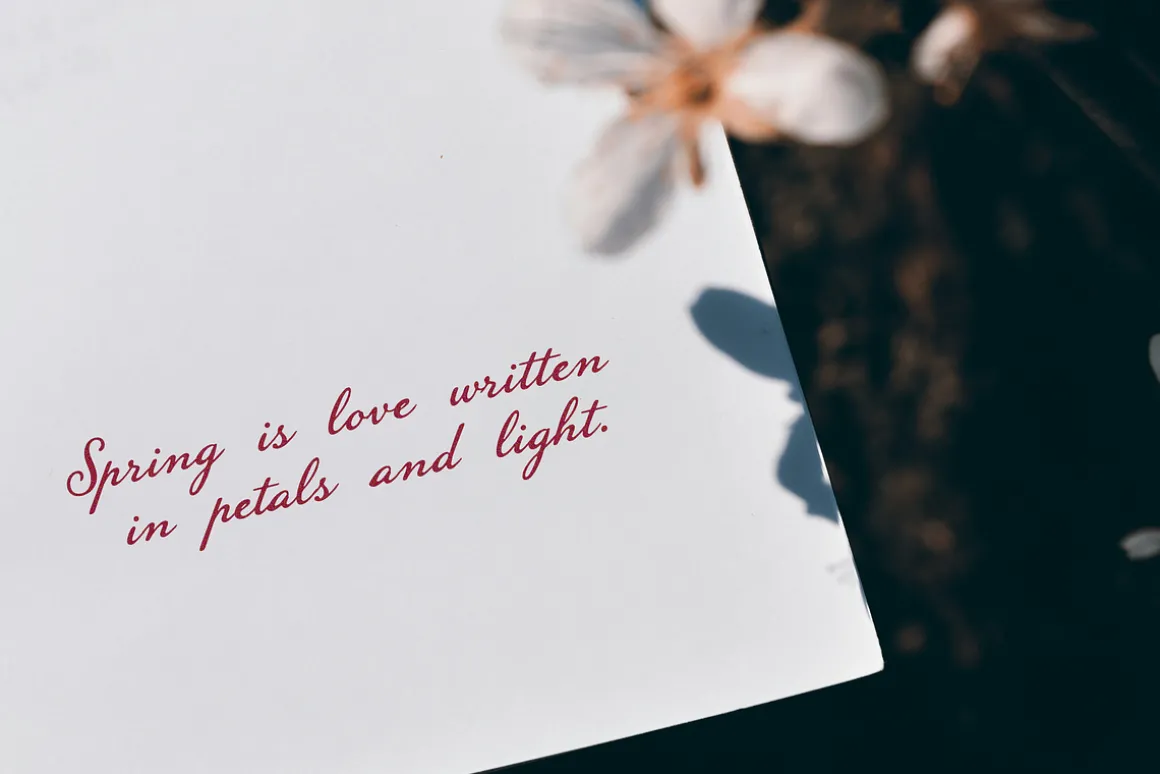 Spring is love written
in petals and light.